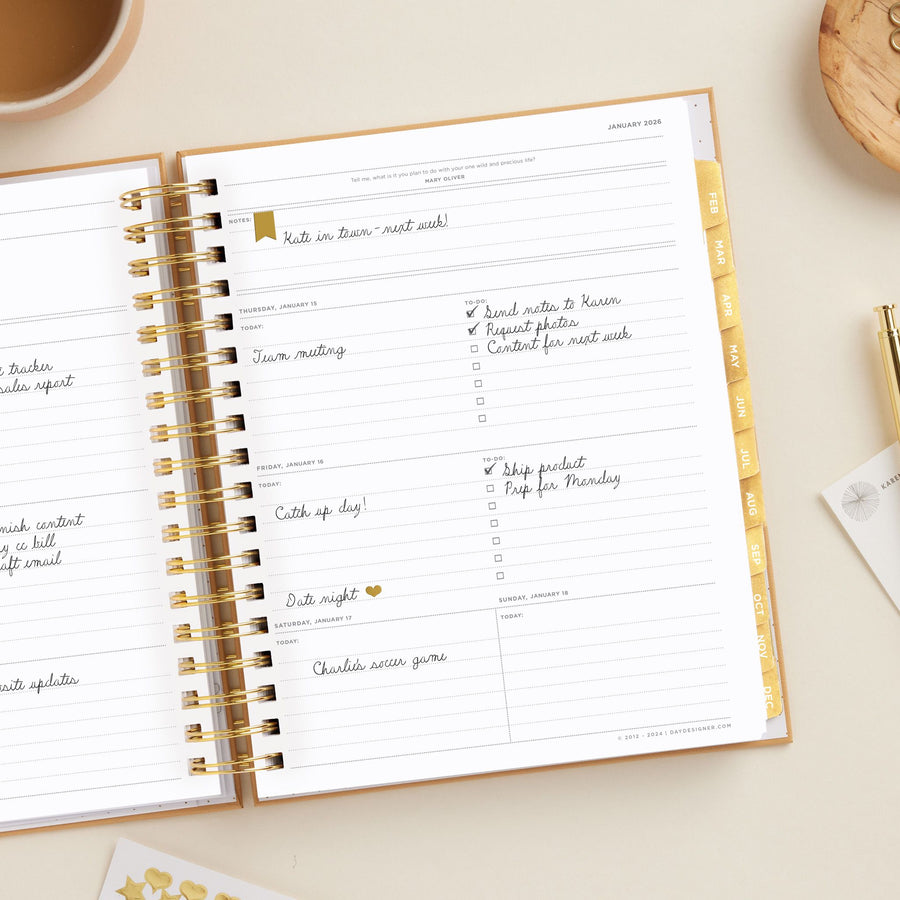 tracker
sales report
content
cc bill
email
updates
JANUARY 2026
Tell me, what is it you plan to do with your one wild and precious life?
MARY OLIVER
NOTES:
Kate in town - next week!
THURSDAY, JANUARY 15
TODAY:
Team meeting
TO-DO:
Send notes to Karen
Request photos
Content for next week
FRIDAY, JANUARY 16
TODAY:
Catch up day!
Date night
TO-DO:
Ship product
Prep for Monday
SATURDAY, JANUARY 17
TODAY:
Charlie's soccer game
SUNDAY, JANUARY 18
TODAY:
© 2012 - 2024 | DAYDESIGNER.COM
FEB
MAR
APR
MAY
JUN
JUL
AUG
SEP
OCT
NOV
DEC
KAREN